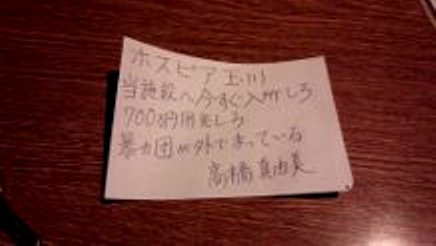 ホスピア玉川
当施設へ今すぐ入所しろ
700万円用意しろ
暴力団が外で待っている
高橋真由美